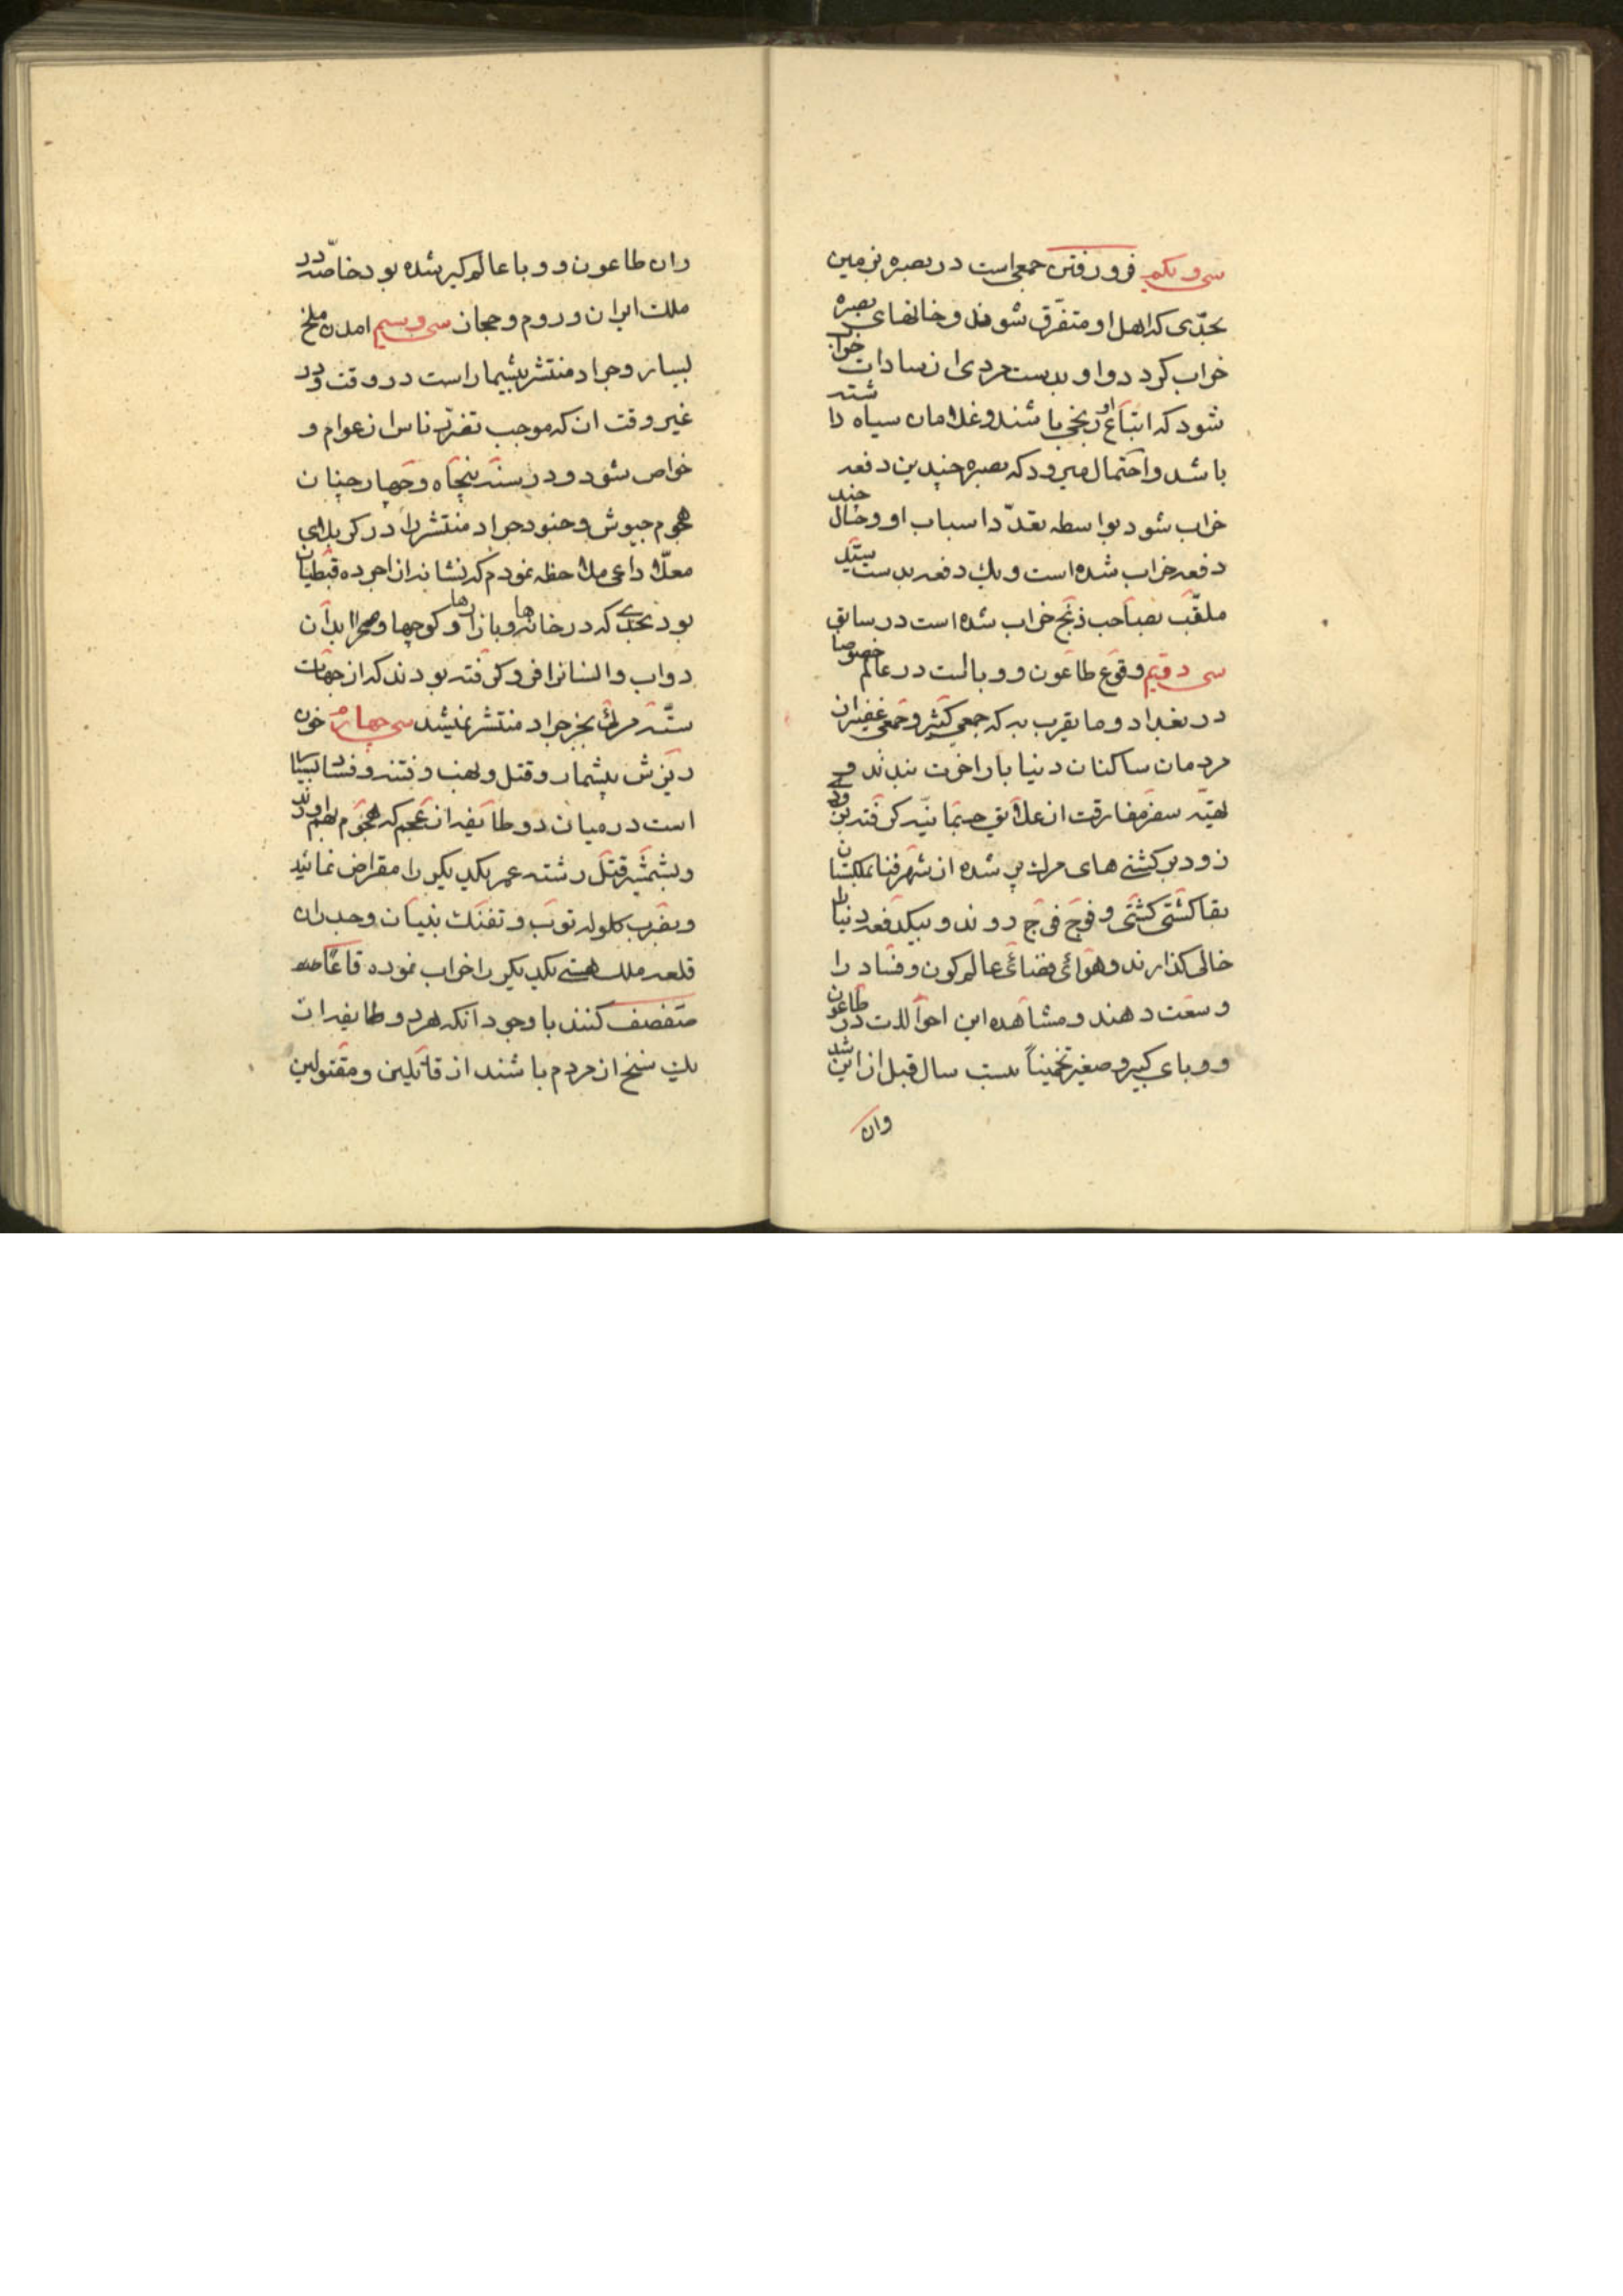 سی و یکم فرو رفتن جمعی است در بصره بزمین
بحدّی که اهل او متفرّق شوند و خانهای بصره
خراب کردد و او بدست مردی از سادات خراب
شود که اتباع او زنجی باشند و غلامان سیاه داشته
باشد و احتمال میرود که بصره چندین دفعه
خراب شود بواسطه تعدّد اسباب او و حال چند
دفعه خراب شده است و یک دفعه بدست سیّد
ملقّب بصاحب زنج خراب شده است در سابق
سی دویم وقوع طاعون و وباست در عالم خصوصا
در بغداد و ما یقرب به که جمعی کثیر و جمعی غفیر از
مردمان ساکنان دنیا بار اخرت بندند و
تهیّه سفر مفارقت از علایق جسمانیّه کرفته بزودی
زود بر کشتی های مرک پر شده از شهر فنا بملکستان
بقا کشتی کشتی و فوج فوج روند و بیکدفعه دنیا را
خالی کذارند و هوائی فضائی عالم کون و فساد را
وسعت دهند و مشاهده این احوالات در طاعون
و وبای کبیر و صغیر تخمیناً بیست سال قبل از این شد
وان
وان طاعون و وبا عالم کیر شده بود خاصّه در
ملک ایران و روم و حجاز سی و سیم امدن ملخ
بسیار و جراد منتشر بیشمار است در وقت و در
غیر وقت ان که موجب تفرّق ناس از عوام و
خواص شود و در سنه پنجاه و چهار چنان
هجوم جیوش و جنود جراد منتشر را در کربلای
معلّا داعی ملاحظه نمودم که نشانه از اجرده قبطیان
بود بحدّی که در خانه ها و بازارها و کوچها و صحرا ابدان
دواب و انسانرا فرو کرفته بودند که از جهات
ستّه مرئی بجز جراد منتشر نمیشد سی چهارم خون
ریزش بیشمار و قتل و نهب و فتنه و فساد بسیار
است در میان دو طائفه از عجم که هجوم بهم اورند
و بشمشیر قتل رشته عمر یکدیکر را مقراض نمایند
و بضرب کلوله توپ و تفنک بنیان و جدران
قلعه ملک هستی یکدیکر را خراب نموده قاعًا
صفصف کنند با وجود انکه هر دو طایفه از
یک سنخ از مردم باشند از قاتلین و مقتولین